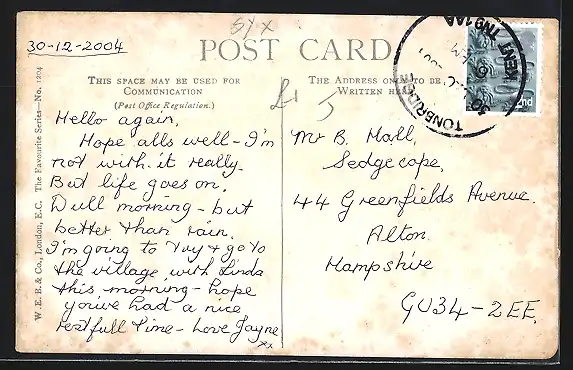 5yx
30-12-2004
POST CARD
THIS SPACE MAY BE USED FOR
COMMUNICATION
(Post Office Regulation.)
THE ADDRESS ONLY TO BE
WRITTEN
W. E. B. & Co., London, E.C. The Favourite Series—No. 1204
£1
J
Hello again,
Hope alls well – I'm
not with-it really.
But life goes on.
Dull morning – but
better than rain.
I'm going to try + go to
the village with Linda
this morning – hope
you've had a nice
restfull time – Love Jayne
xx
Mr B. Hall,
Sedgecope,
44 Greenfields Avenue.
Alton.
Hampshire
GU34-2EE.
TONBRIDGE
KENT TN9 1AA
2nd